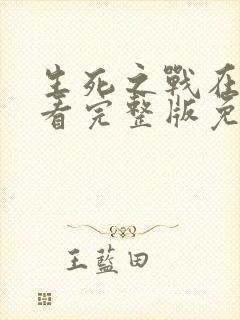 生死之戰在
看完整版免
王藍田